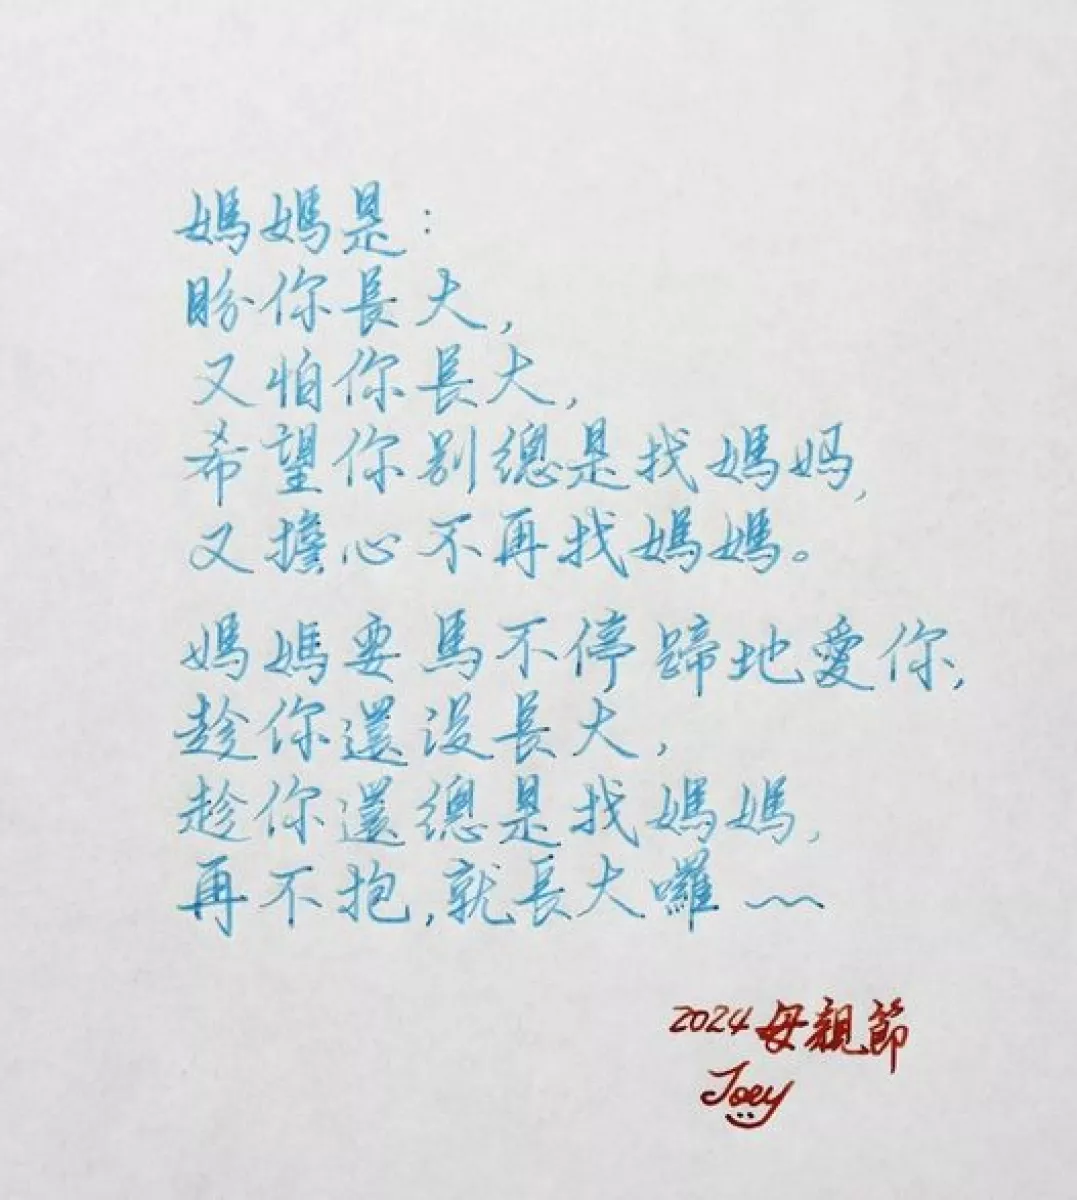 媽媽是：
盼你長大，
又怕你長大，
希望你別總是找媽妈，
又擔心不再找媽媽。
媽媽要馬不停蹄地愛你，
趁你還没長大，
趁你還總是找媽媽，
再不抱，就長大囉～
2024母親節
Joey